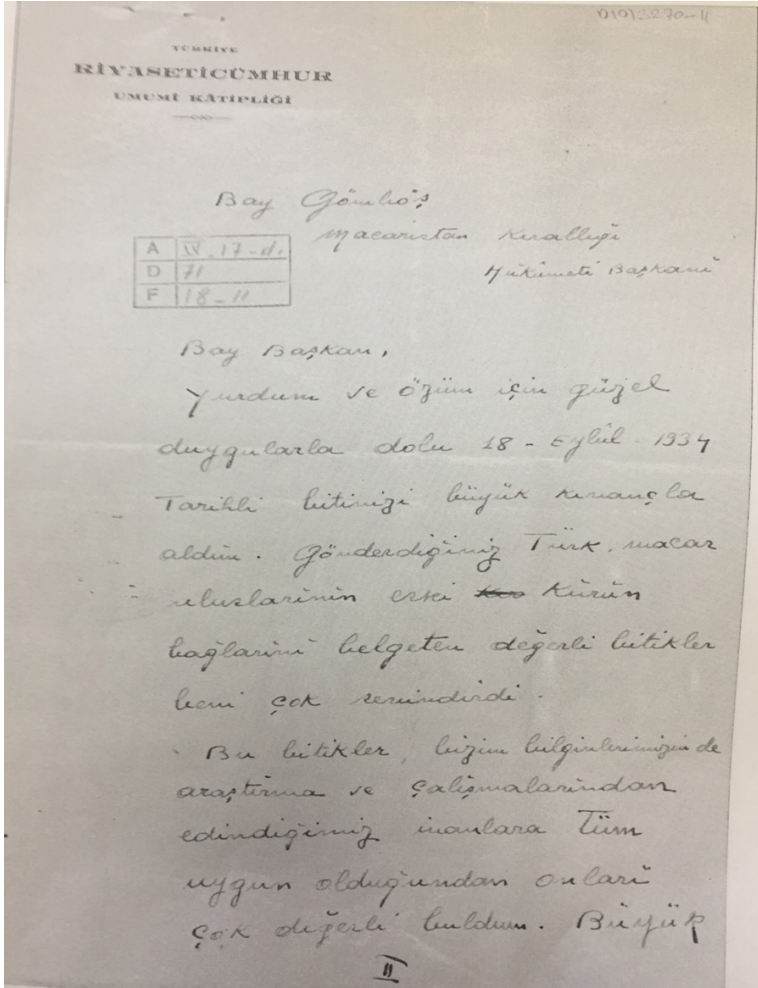 01013270-11
TÜRKİYE
RİYASETİCÜMHUR
UMUMÎ KÂTİPLİĞİ
Bay Gömböş
Macaristan Kırallığı
Hükûmeti Başkanı
A IV.17-d.
D 71
F 18-11
Bay Başkan,
Yurdum ve özüm için güzel
duygularla dolu 18 - Eylûl - 1934
Tarihli bitinizi büyük kınançla
aldım. Gönderdiğiniz Türk, macar
uluslarının eski Kürün
bağlarını belgeten değerli bitikler
beni çok sevindirdi.
Bu bitikler, bizim bilginlerimizin de
araştırma ve çalışmalarından
edindiğimiz inanlara Tüm
uygun olduğundan onları
çok değerli buldum. Büyük
II